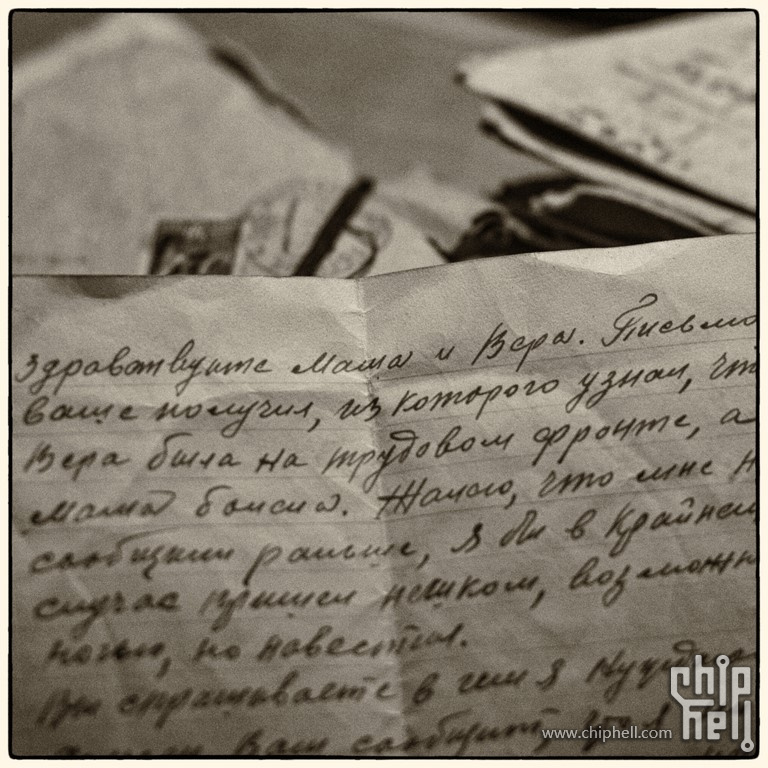 Здравствуйте Мама и Вера. Письмо
ваше получил, из которого узнал, что
Вера была на трудовом фронте, а
Мама больна. Жалко, что мне н
сообщили раньше, я бы в крайнем
случае пришел пешком, возможн
ночью, но навестил.
Вы спрашиваете в чем я нуждаюсь
Вам сообщить, что я
chip hell
www.chiphell.com